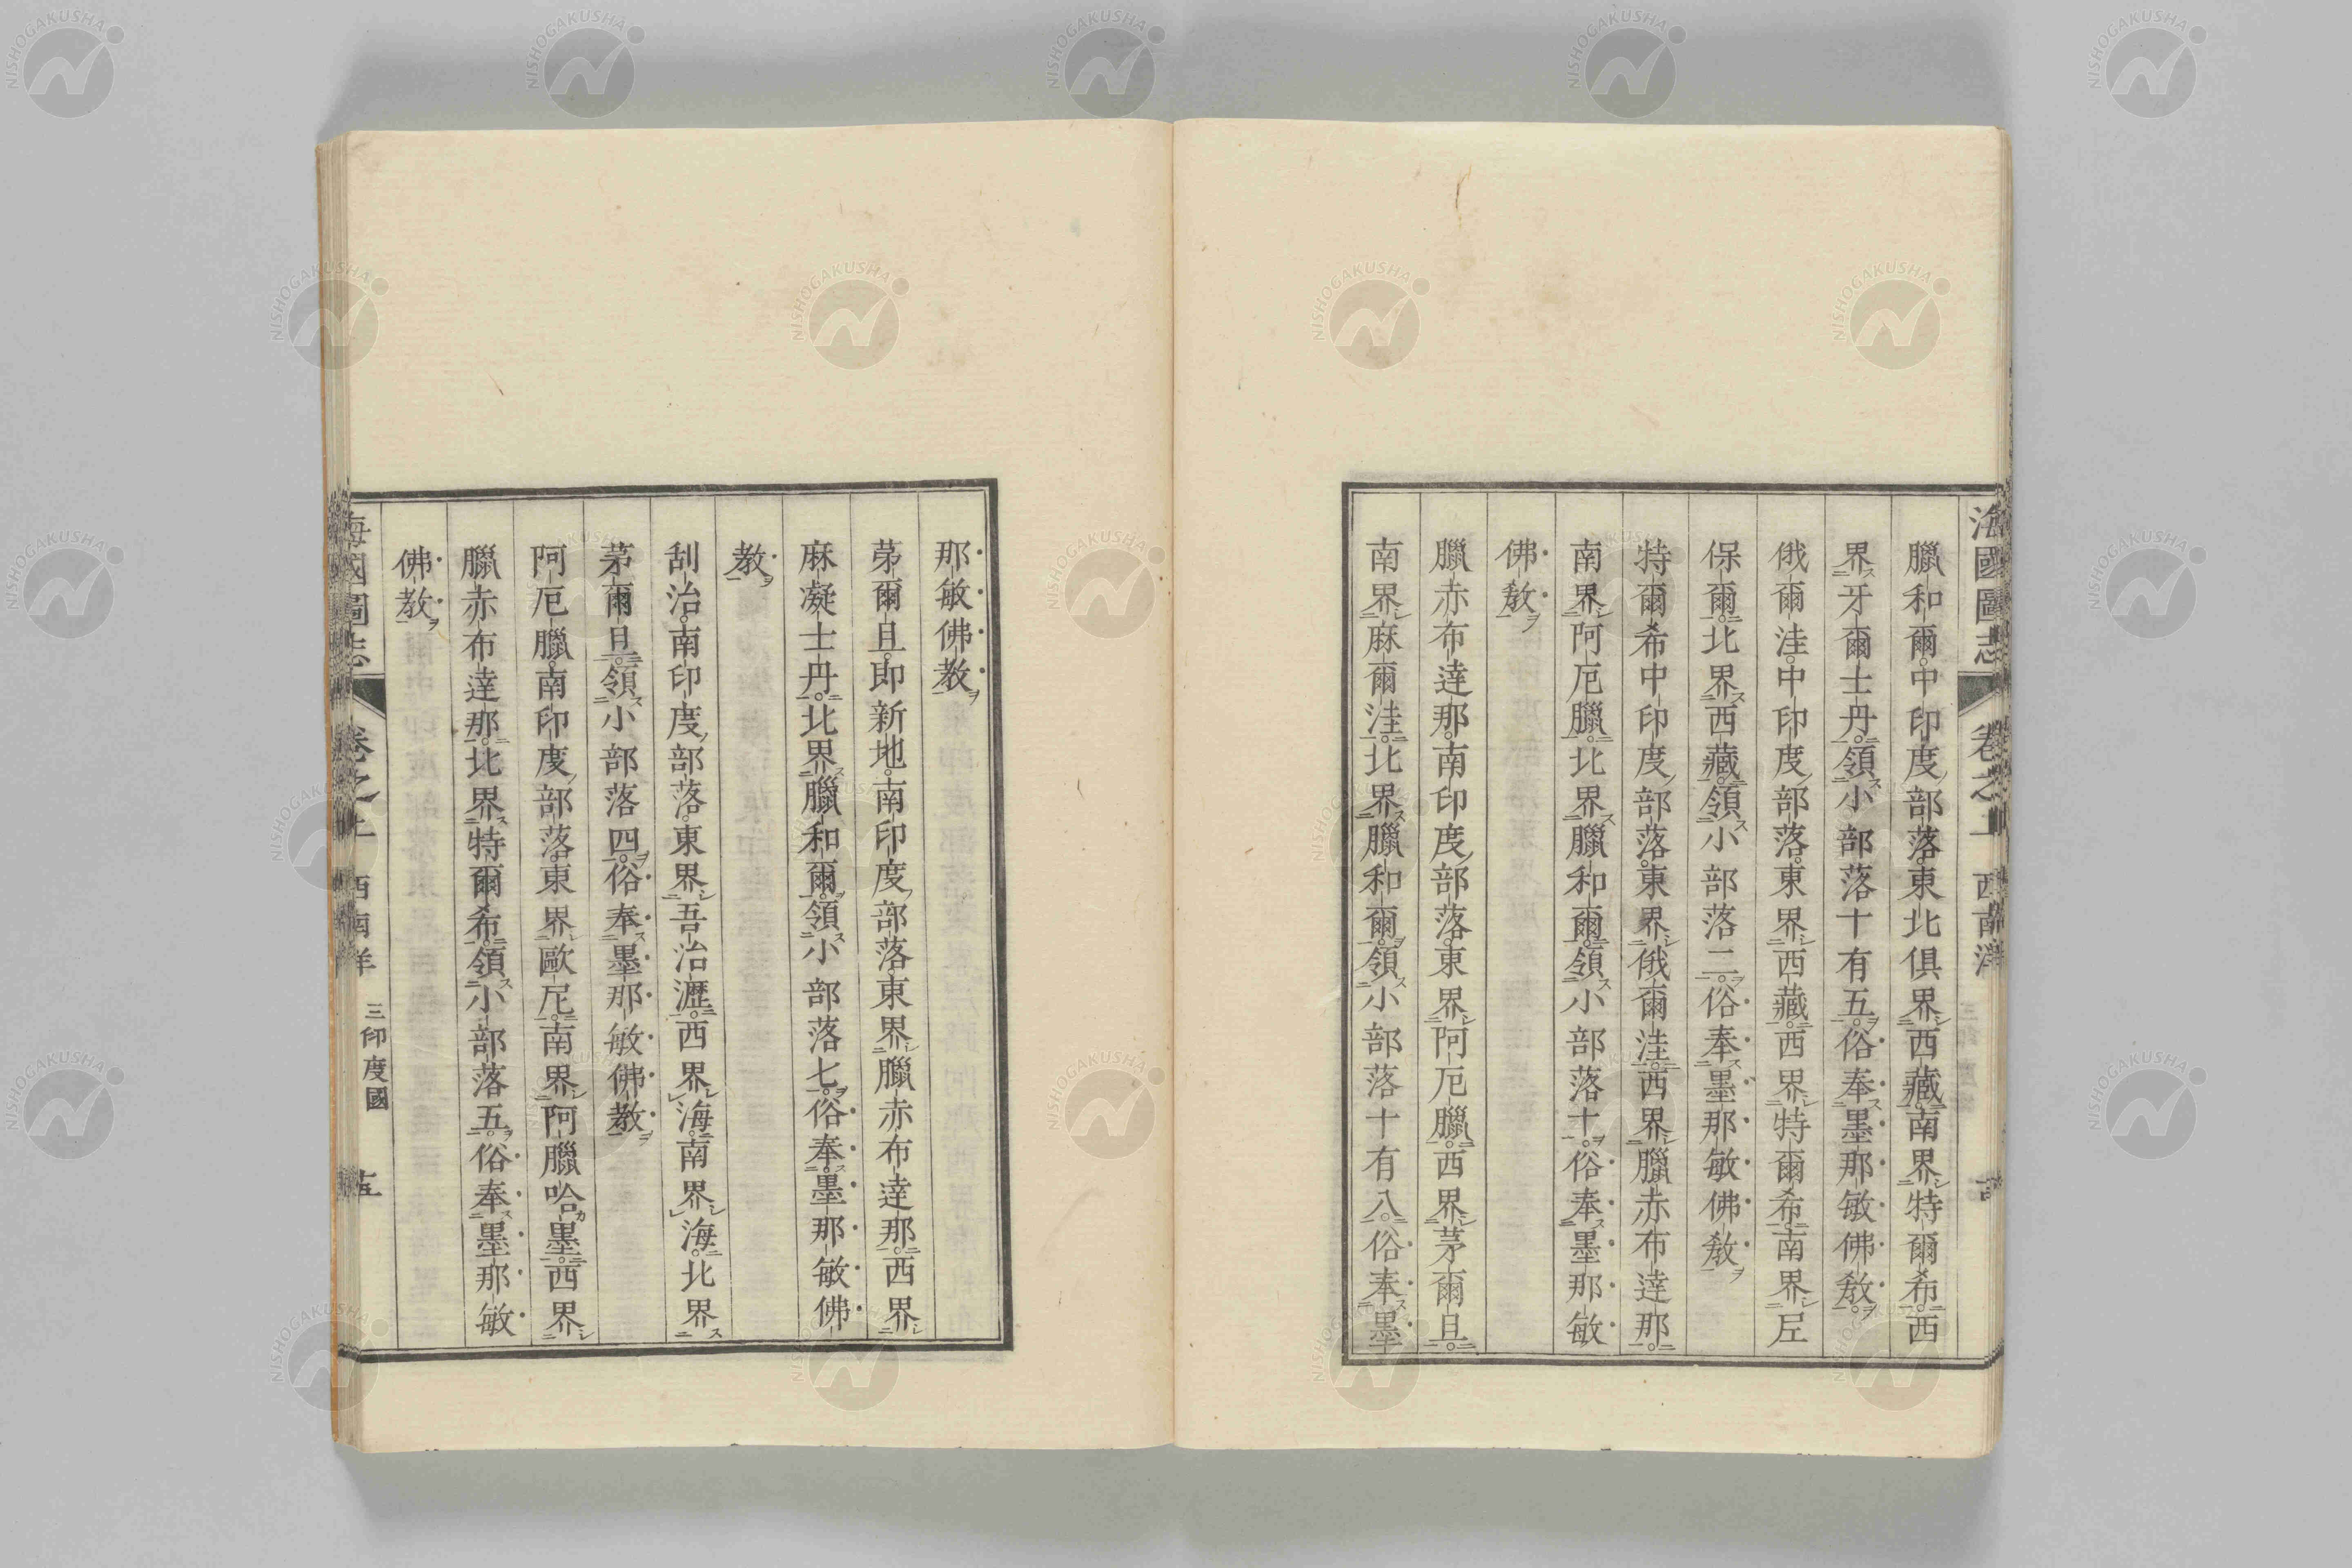 臘和爾。中印度ノ部落。東北俱界シ西藏。南界シ特爾希。西
界ス牙爾士丹。領ス小部落十有五ヲ。俗奉ス墨那敏佛教ヲ。
俄爾洼。中印度ノ部落。東界シ西藏。西界シ特爾希。南界シ
保爾。北界ス西藏。領ス小部落二ヲ。俗奉ス墨那敏佛教ヲ
特爾希中印度ノ部落。東界シ俄爾洼。西界シ臘赤布達那。
南界シ阿厄臘。北界ス臘和爾。領ス小部落十ヲ。俗奉ス墨那敏
佛教ヲ
臘赤布達那。南印度ノ部落。東界シ阿厄臘。西界シ茅爾旦。
南界シ麻爾洼。北界ス臘和爾。領ス小部落十有八ヲ。俗奉ス墨
那敏佛教ヲ
茅爾旦。即新地。南印度ノ部落。東界シ臘赤布達那。西界シ
麻凝士丹。北界ス臘和爾。領ス小部落七ヲ。俗奉ス墨那敏佛
教ヲ
刮治。南印度ノ部落。東界シ吾治瀝。西界シ海。南界シ海。北界ス
茅爾旦。領ス小部落四ヲ。俗奉ス墨那敏佛教ヲ
阿厄臘。南印度ノ部落。東界シ歐尼。南界シ阿臘哈墨。西界シ
臘赤布達那。北界ス特爾希。領ス小部落五ヲ。俗奉ス墨那敏
佛教ヲ
海國圖志 卷之 西南洋 三印度國